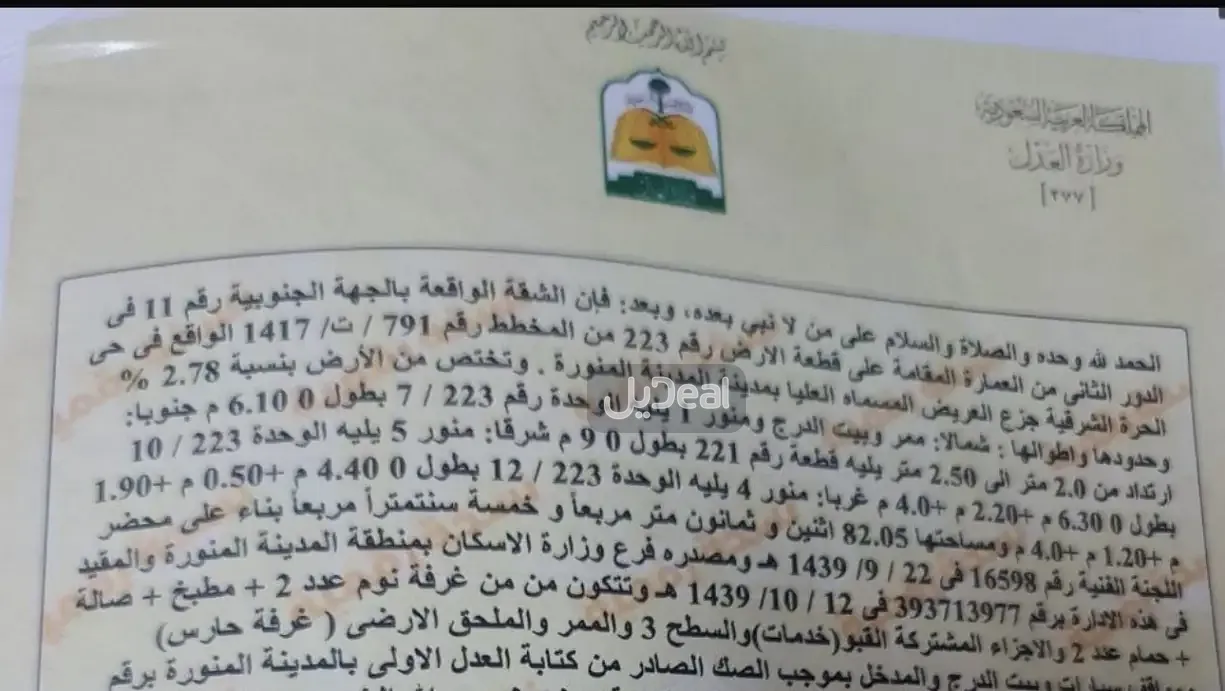 بسم الله الرحمن الرحيم
المملكة العربية السعودية
وزارة العدل
[٢٧٧]
الحمد لله وحده والصلاة والسلام على من لا نبي بعده، وبعد: فإن الشقة الواقعة بالجهة الجنوبية رقم 11 فى
الدور الثانى من العمارة المقامة على قطعة الارض رقم 223 من المخطط رقم 791 / ت/ 1417 الواقع فى حى
الحرة الشرقية جزع العريض المسماه العليا بمدينة المدينة المنورة . وتختص من الأرض بنسبة 2.78 %
وحدودها واطوالها : شمالا: ممر وبيت الدرج ومنور 1 يليه الوحدة رقم 223 / 7 بطول 0 6.10 م جنوبا:
ارتداد من 2.0 متر الى 2.50 متر يليه قطعة رقم 221 بطول 0 9 م شرقا: منور 5 يليه الوحدة 223 / 10
بطول 0 6.30 م +2.20 م +4.0 م غربا: منور 4 يليه الوحدة 223 / 12 بطول 0 4.40 م +0.50 م +1.90
م +1.20 م +4.0 م ومساحتها 82.05 اثنين و ثمانون متر مربعاً و خمسة سنتمتراً مربعاً بناء على محضر
اللجنة الفنية رقم 16598 فى 22 / 9 /1439 هـ ومصدره فرع وزارة الاسكان بمنطقة المدينة المنورة والمقيد
فى هذه الادارة برقم 393713977 فى 12 / 10/ 1439 هـ وتتكون من من غرفة نوم عدد 2 + مطبخ + صالة
+ حمام عدد 2 والاجزاء المشتركة القبو(خدمات)والسطح 3 والممر والملحق الارضى ( غرفة حارس)
وبيت الدرج والمدخل بموجب الصك الصادر من كتابة العدل الاولى بالمدينة المنورة برقم
ديل Deal